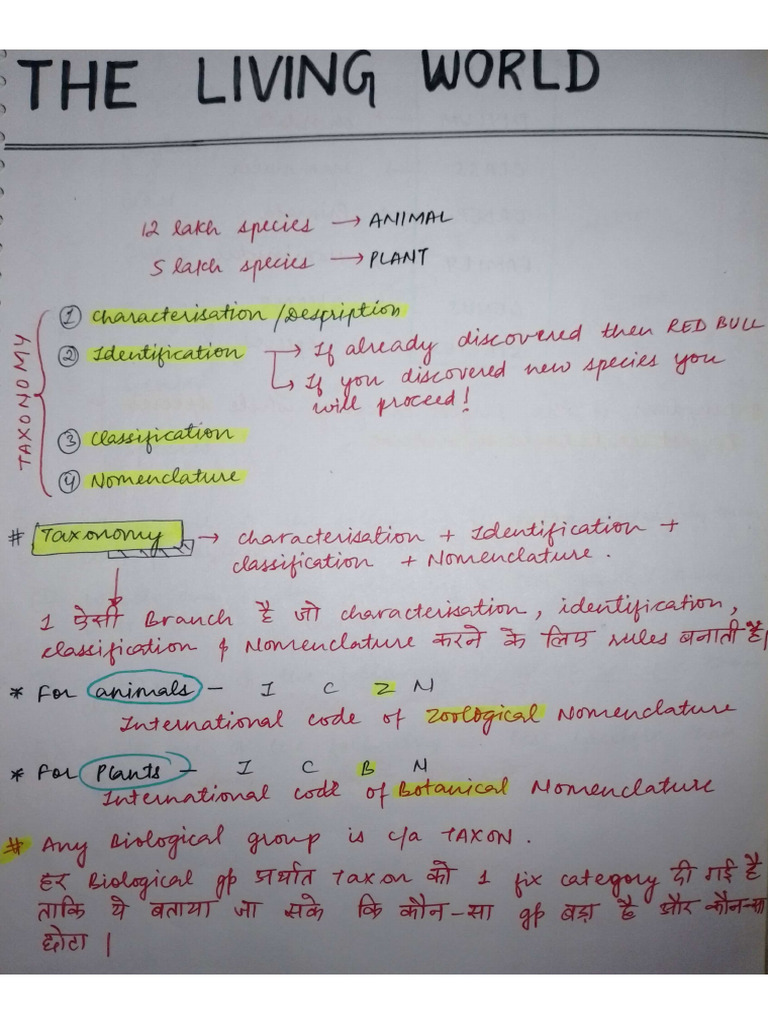 THE LIVING WORLD
12 lakh species → ANIMAL
5 lakh species → PLANT
TAXONOMY
① Characterisation / Description
② Identification → If already discovered then RED BULL
↳ If you discovered new species you
will proceed!
③ Classification
④ Nomenclature
# Taxonomy → characterisation + Identification +
classification + Nomenclature.
1 ऐसी Branch है जो characterisation, identification,
classification & Nomenclature करने के लिए rules बनाती है।
* For animals – I C Z N
International code of Zoological Nomenclature
* For Plants – I C B N
International code of Botanical Nomenclature
# Any Biological group is c/a TAXON.
हर Biological gp अर्थात Taxon को 1 fix category दी गई है
ताकि ये बताया जा सके कि कौन-सा gp बड़ा है और कौन-सा
छोटा।